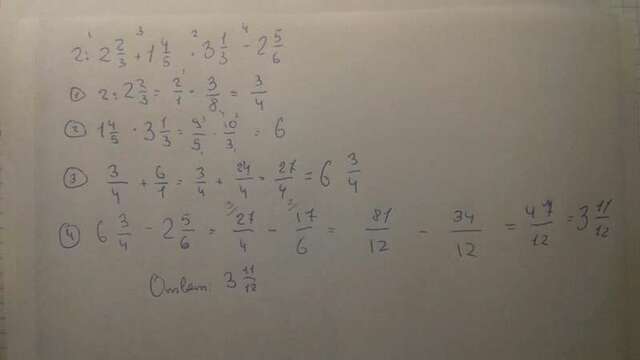 2 : 2 2/3 + 1 4/5 · 3 1/3 - 2 5/6
① 2 : 2 2/3 = 2/1 · 3/8 = 3/4
② 1 4/5 · 3 1/3 = 9/5 · 10/3 = 6
③ 3/4 + 6/1 = 3/4 + 24/4 = 27/4 = 6 3/4
④ 6 3/4 - 2 5/6 = 27/4 - 17/6 = 81/12 - 34/12 = 47/12 = 3 11/12
Ответ: 3 11/12